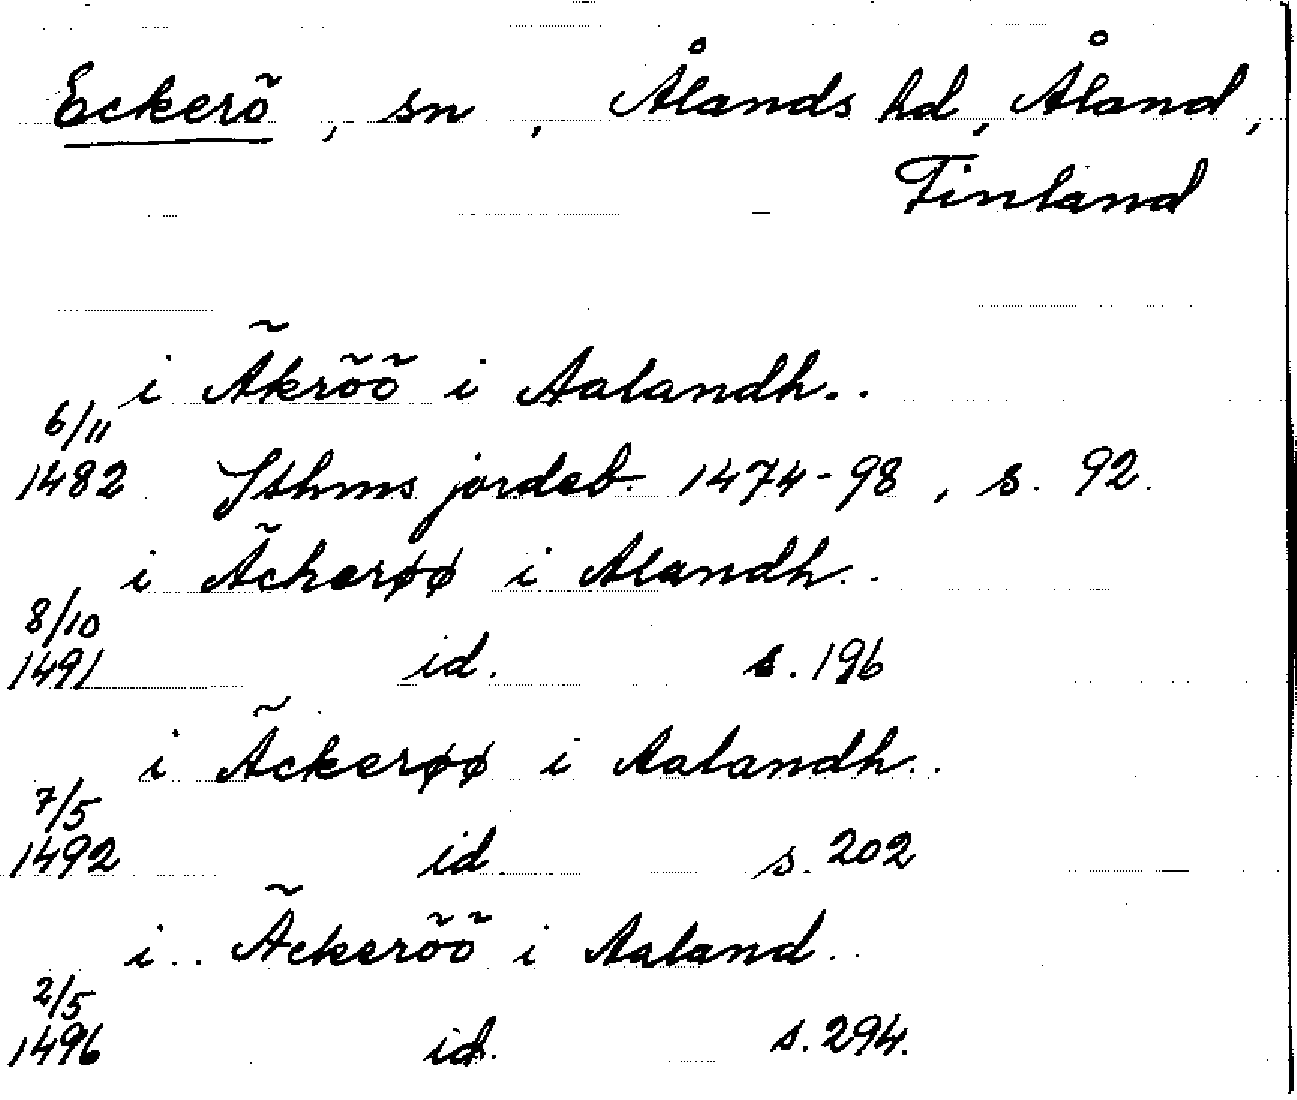 Eckerö, sn, Ålands hd, Åland,
Finland
i Äkröö i Aalandh..
6/11
1482 Sthms jordeb. 1474-98, s. 92.
i Ächerøø i Alandh..
8/10
1491 id. s. 196
i Äckerøø i Aalandh..
7/5
1492 id s. 202
i.. Äckeröö i Aaland..
2/5
1496 id. s. 294.